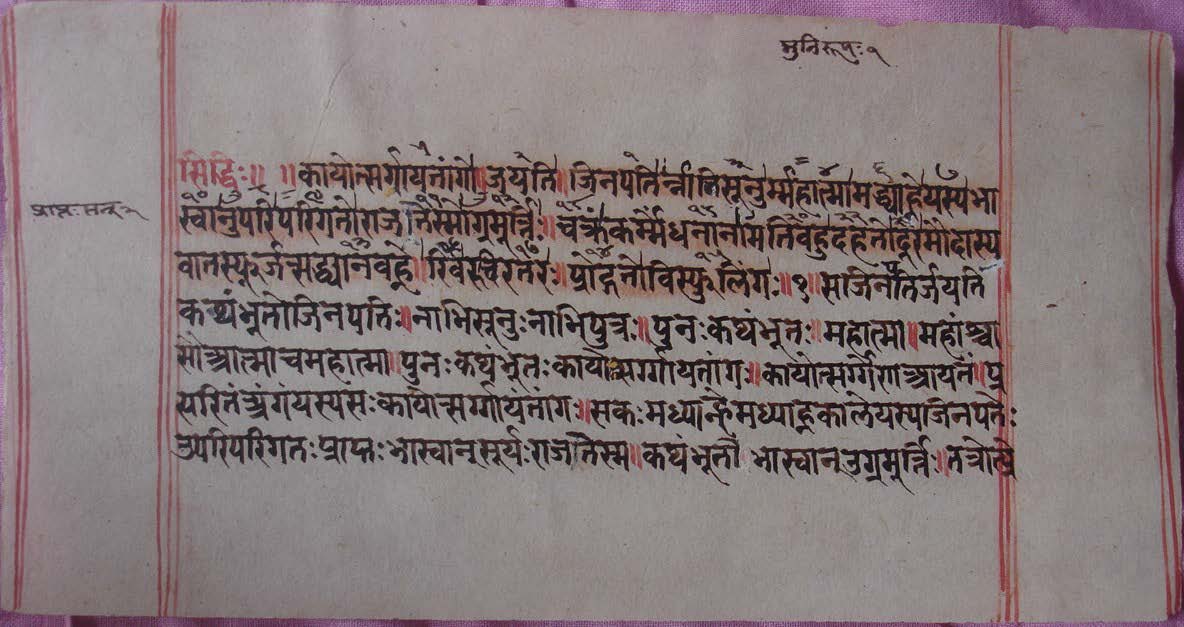 मुनिरूपः १
सिद्धिः॥ ॥कायोत्सर्गायतांगो जयति जिनपतिर्न्नाभिसूनुर्म्महात्मा मध्याह्नेयस्यभा
प्राप्तः सन् २
स्वानुपरिपरिगतोराजतेस्मोग्रमूर्त्तिः॥चक्रंकर्म्मेंधनानांमतिबहुदहतोदूरमौदास्य
वातस्फूर्जत्सद्ध्यानवह्ने रिवरुचिरतरः प्रोद्गतोविस्फुलिंगः॥१॥सजिनपतिर्जयति
कथंभूतोजिनपतिः॥नाभिसूनुःनाभिपुत्रः॥पुनःकथंभूतः॥महात्मा॥महांश्चा
सौआत्माचमहात्मा॥पुनःकथंभूतःकायोत्सर्ग्गायतांगः॥कायोत्सर्ग्गेणआयतं॥प्र
स्परितंअंगंयस्यसःकायोत्सर्ग्गायतांगः॥सकःमध्यान्हेमध्याह्नकालेयस्यजिनपतेः
उपरिपरिगतःप्राप्तःभास्वान्सूर्यःराजतेस्म॥कथंभूतो भास्वान्उग्रमूर्त्तिः॥तत्रोत्प्रे